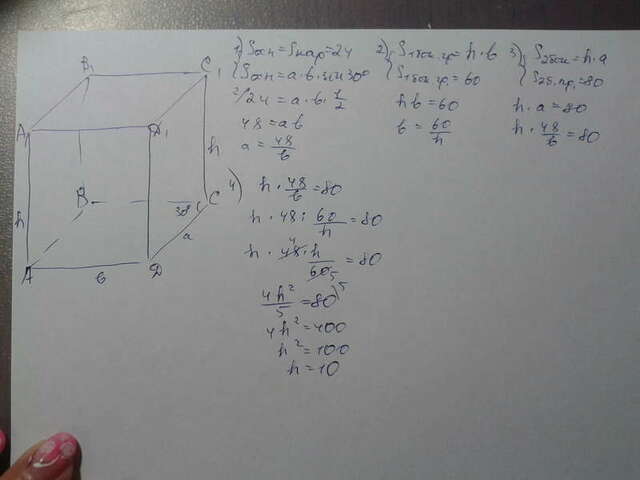 B₁ C₁
A₁ D₁
h
B 30° C
h a
A в D
1) Sосн = Sпар = 24
Sосн = a · в · sin 30°
24 = a · в · 1/2
48 = aв
a = 48/в
2) S₁бок.гр = h · в
S₁бок.гр. = 60
hв = 60
в = 60/h
3) S₂бок = h · a
S₂б.гр. = 80
h · a = 80
h · 48/в = 80
4) h · 48/в = 80
h · 48 : 60/h = 80
h · 48 · h/60 = 80
4h²/5 = 80
4h² = 400
h² = 100
h = 10